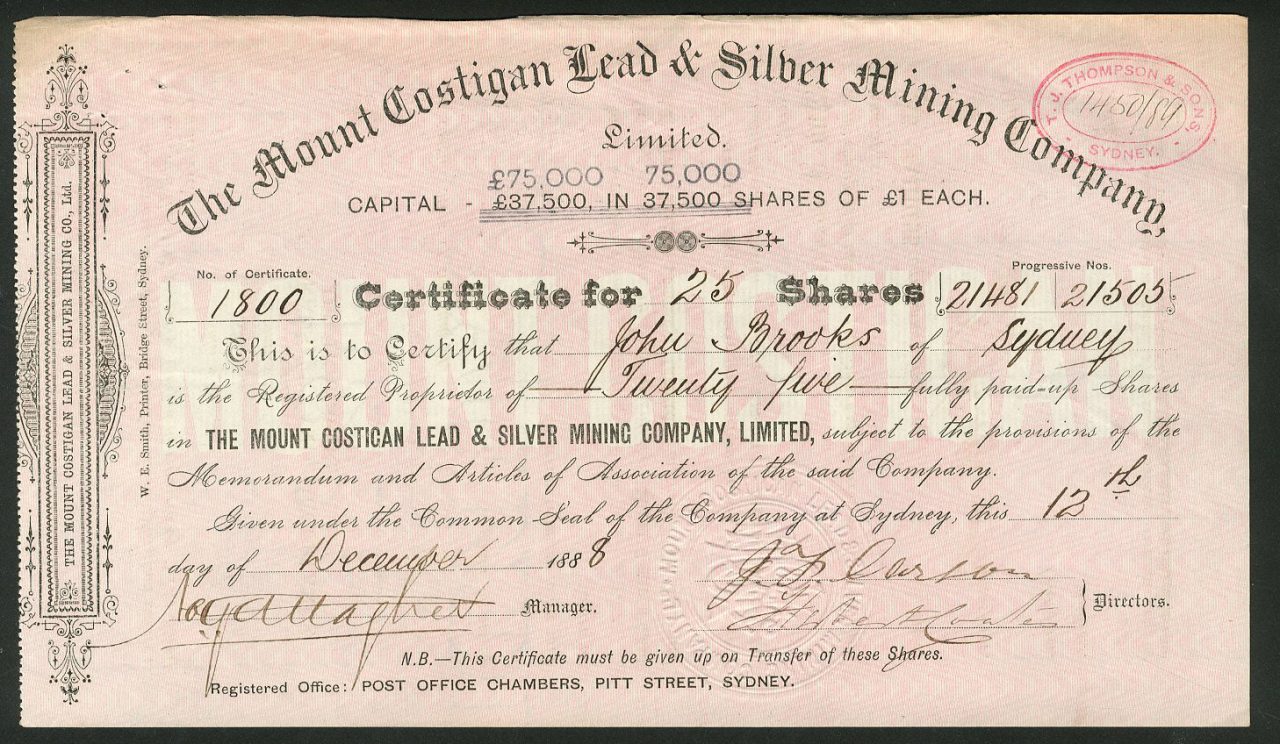 The Mount Costigan Lead & Silver Mining Company,
Limited.
T. J. THOMPSON & SONS,
1480/89
SYDNEY.
£75,000 75,000
CAPITAL - £37,500, IN 37,500 SHARES OF £1 EACH.
No. of Certificate.
Progressive Nos.
1800 Certificate for 25 Shares 21481 21505
This is to Certify that John Brooks of Sydney
is the Registered Proprietor of Twenty five fully paid-up Shares
in THE MOUNT COSTIGAN LEAD & SILVER MINING COMPANY, LIMITED, subject to the provisions of the
Memorandum and Articles of Association of the said Company.
Given under the Common Seal of the Company at Sydney, this 12th
day of December 1888
Manager.
Directors.
N.B.—This Certificate must be given up on Transfer of these Shares.
Registered Office: POST OFFICE CHAMBERS, PITT STREET, SYDNEY.
THE MOUNT COSTIGAN LEAD & SILVER MINING CO., Ltd.
W. E. Smith, Printer, Bridge Street, Sydney.